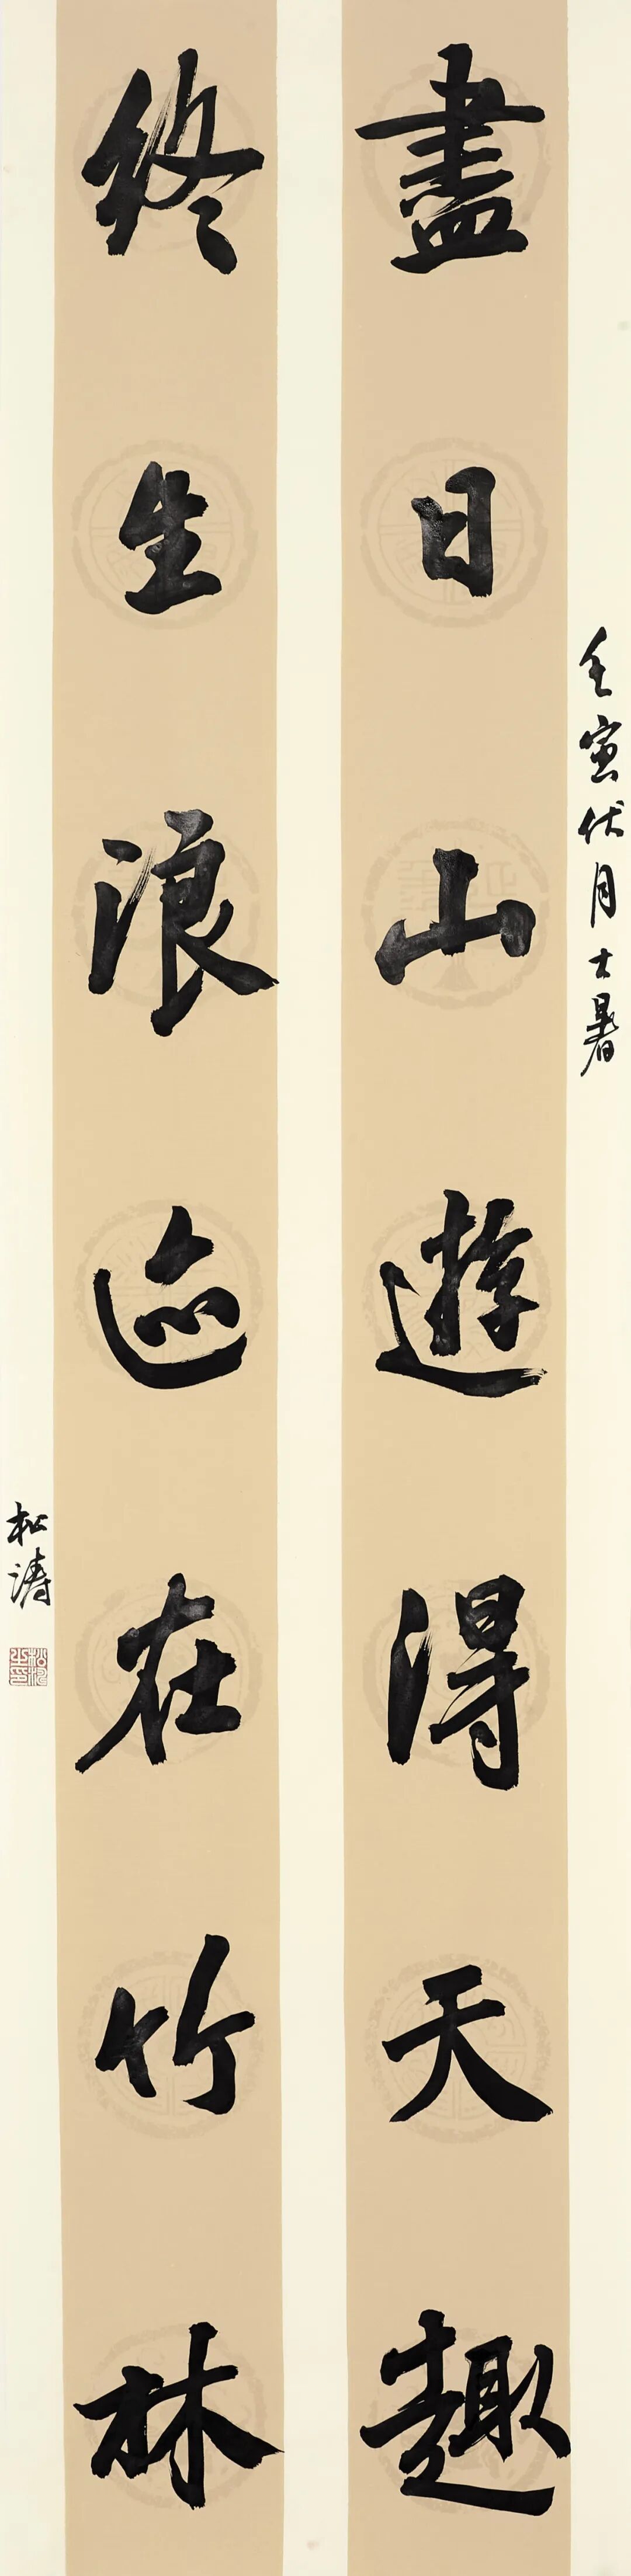 壬寅伏月大暑
盡日山遊得天趣
終生浪迹在竹林
松濤